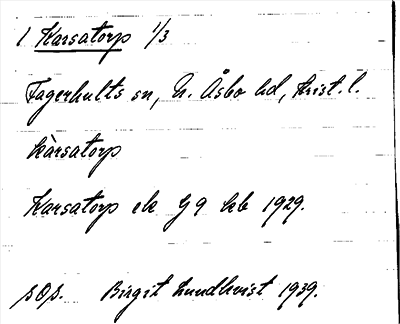 1 Karsatorp 1/3
Fagerhults sn, N. Åsbo hd, Krist. l.
kàrsatorp
Karsatorp ek G 9 kb 1929.
sOp. Birgit Lundkvist 1939.